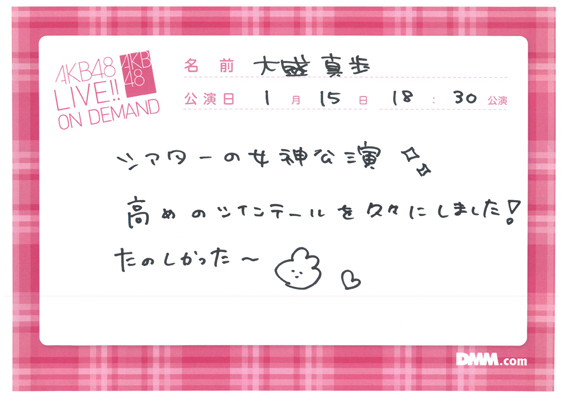 AKB48
LIVE!!
ON DEMAND
AKB
48
名前 大盛真歩
公演日 1月15日 18:30公演
シアターの女神公演
高めのツインテールを久々にしました!
たのしかった〜
DMM.com